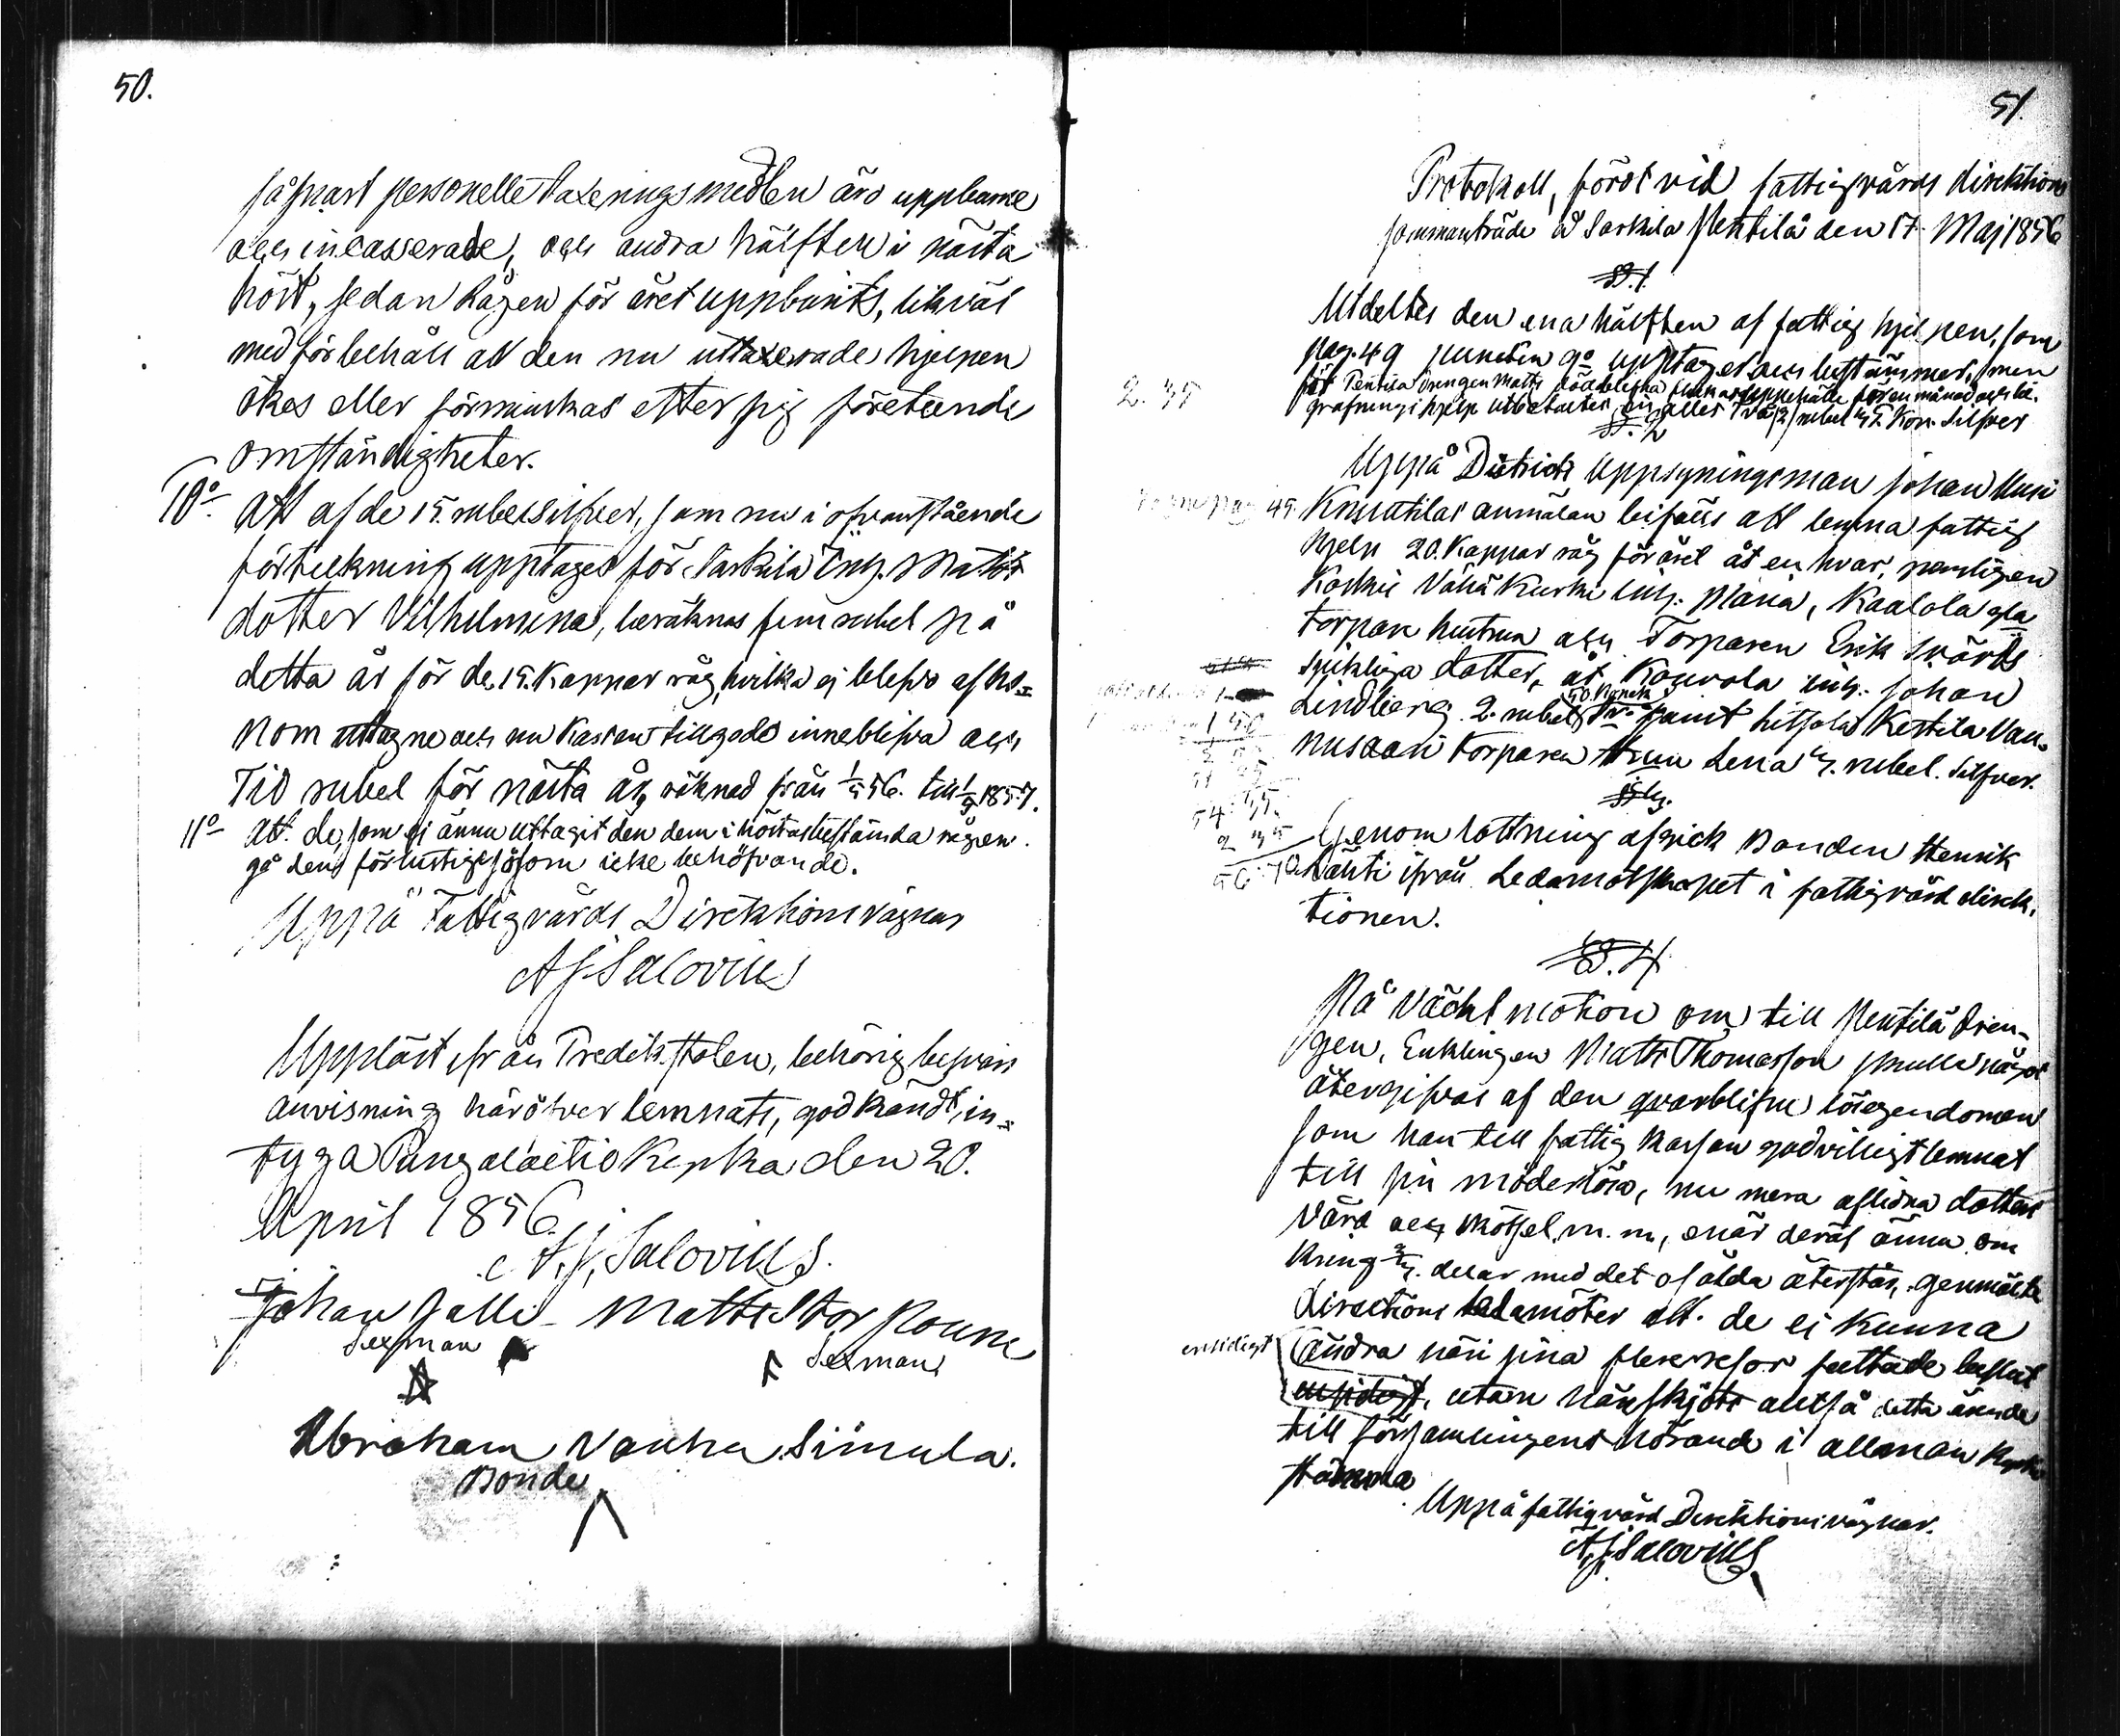 50.
så snart personelle taxeringsmedlen äro uppburne
och incasserade, och andra hälften i nästa
höst, sedan Rågen för året uppburits, likväl
med förbehåll att den nu uttaxerade hjelpen
ökes eller förminskas efter sig företeende
omständigheter.
10º Att af de 15. rubel silfver, som nu i ofvanstående
förteckning upptages för Sarkila Inh. Matts
dotter Vilhelmina, beräknas fem rubel på
detta år för de 15. Kappar råg, hvilka ej blefvo af ho-
nom uttagne och nu Kassan tillgodo innebliva och
Tio rubel för nästa år, räknad från 1/5 56. till 1/5 1857.
11º Att de, som ej ännu uttagit den dem i höstas bestämda rågen
gå dens förlustige såsom icke behöfvande.
Uppå Fattigvårds Direktionsvägnar
A J Salovius
Uppläst ifrån Predikstolen, behörig
anvisning häröfver lemnats, godkändt, in-
tyga Pungalaitio Kyrka den 20.
April 1856.
A. J. Salovius.
Johan Jalli Matts Stor Roune
Sexman Sexman
Abraham Vanha Simula.
Bonde
51.
Protokoll, fördt vid fattigvårds direktions
sammanträde å Sarkila Pentilä den 17. Maj 1856
§. 1.
Utdeltes den ena hälften af fattig hjelpen, som
pag. 49 puncten 9º upptages och bestämmes, men
för Pentilä drengen Matts dödblefna uppehälle för en månad och be-
grafningshjelp utbetaltes alles Två /2/ rubel 45. Kop. Silfver
2. 45
§. 2
Uppå Districts Uppsyningsman Johan Uusi
Knuutilas anmälan bifölls att lemna fattig
hjelp 20. Kappar råg för året åt en hvar, nemligen
Koskis Vähä Kurki inh. Maria, Kaalola gla
Torpare hustrun och Torparen Erik Svärds
sjukliga dotter, åt Kouvola inh. Johan
Lindberg 2. rubel 50. Kopek Sr. samt
Torparen Lena rubel. Silfver.
§. 3.
Genom lottning afgick Bonden Henrik
Lähti ifrån Ledamotskapet i fattigvård direk-
tionen.
§. 4
På väckt motion om till Pentilä dren-
gen, Enklingen Matts Thomasson skulle något
återgifvas af den qvarblifne lösegendomen
som han till fattig kassan godvilligt lemnat
till sin moderlösa, nu mera aflidna dotters
Vård och skötsel m. m, enär deraf ännu om
kring delar med det osålda återstår, genmälte
directions ledamöter att de ei kunna
ensidigt
ändra häri sina föttade beslut
ensidigt, utan hänskjöts alltså detta ärende
till församlingens hörande i allmän Kyrko
stämma
Uppå fattigvård Direktionsvägnar.
A. J. Salovius